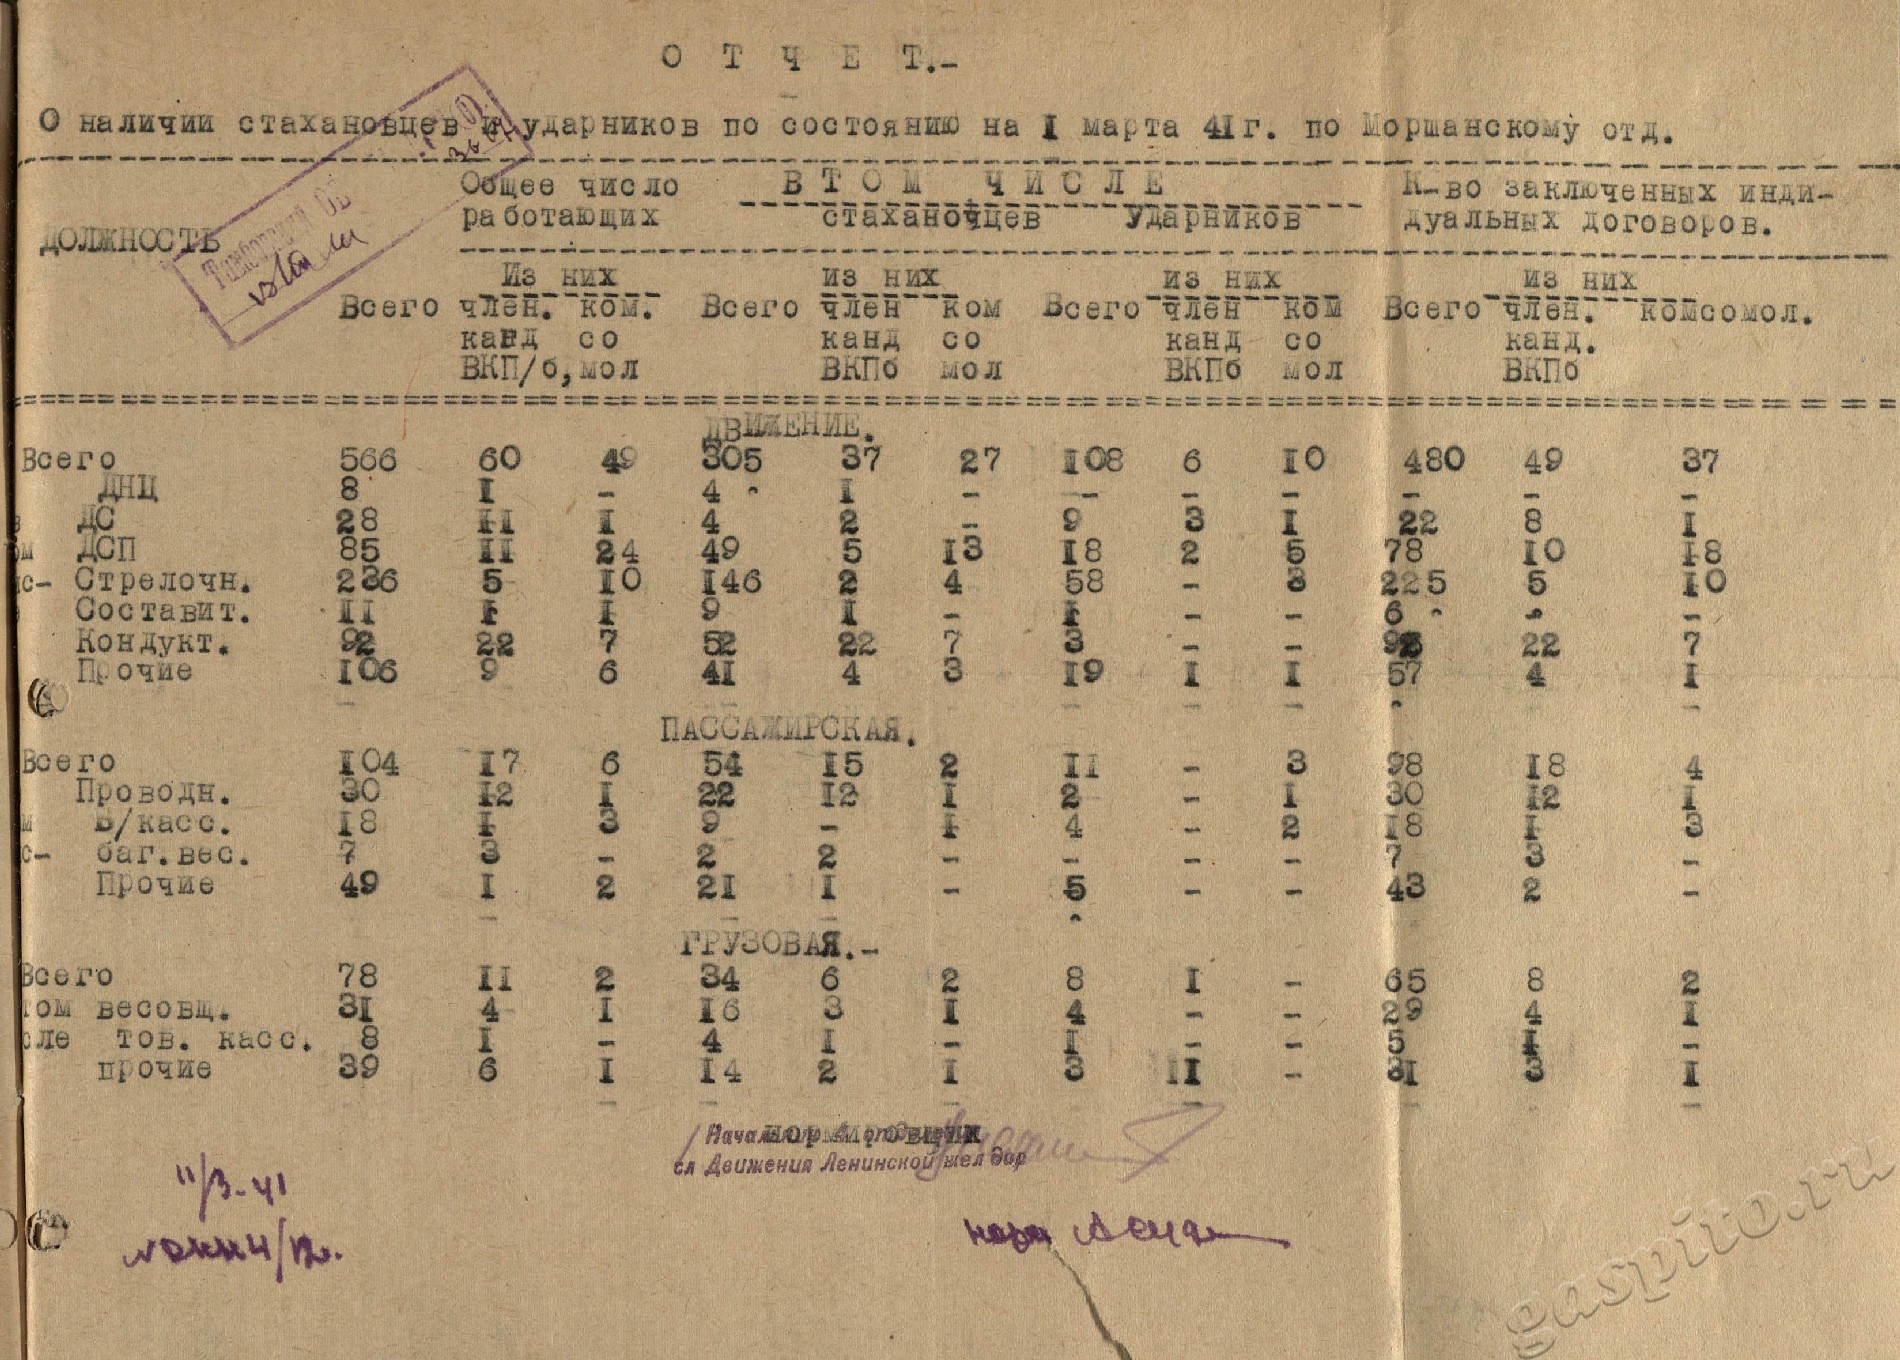 О Т Ч Е Т.-
О наличии стахановцев и ударников по состоянию на I марта 4I г. по Моршанскому отд.
Общее число В Т О М Ч И С Л Е К-во заключенных инди-
работающих стаханочцев Ударников дуальных договоров.
ДОЛЖНОСТЬ
Из них из них из них из них
Всего член. ком. Всего член ком Всего член ком Всего член. комсомол.
канд со канд со канд со канд.
ВКП/б, мол ВКПб мол ВКПб мол ВКПб
ДВИЖЕНИЕ.
Всего 566 60 49 305 37 27 I08 6 I0 480 49 37
ДНЦ 8 I - 4 I - - - - - - -
ДС 28 II I 4 2 - 9 3 I 22 8 I
ом ДСП 85 II 24 49 5 I3 I8 2 5 78 I0 I8
ис- Стрелочн. 236 5 I0 I46 2 4 58 - 3 225 5 I0
Составит. II I I 9 I - I - - 6 - -
Кондукт. 92 22 7 52 22 7 3 - - 22 7
Прочие I06 9 6 4I 4 3 I9 I I 57 4 I
ПАССАЖИРСКАЯ.
Всего I04 I7 6 54 I5 2 II - 3 98 I8 4
Проводн. 30 I2 I 22 I2 I 2 - I 30 I2 I
м Б/касс. I8 I 3 9 - I 4 - 2 I8 I 3
с- баг.вес. 7 3 - 2 2 - - - - 7 3 -
Прочие 49 I 2 2I I - 5 - - 43 2 -
ГРУЗОВАЯ.-
Всего 78 II 2 34 6 2 8 I - 65 8 2
том весовщ. 3I 4 I I6 3 I 4 - - 29 4 I
сле тов. касс. 8 I - 4 I - I - - 5 I -
прочие 39 6 I I4 2 I 3 I - 3I 3 I
нормировщик
сл Движения Ленинской жел дор
11/3-41
gaspito.ru